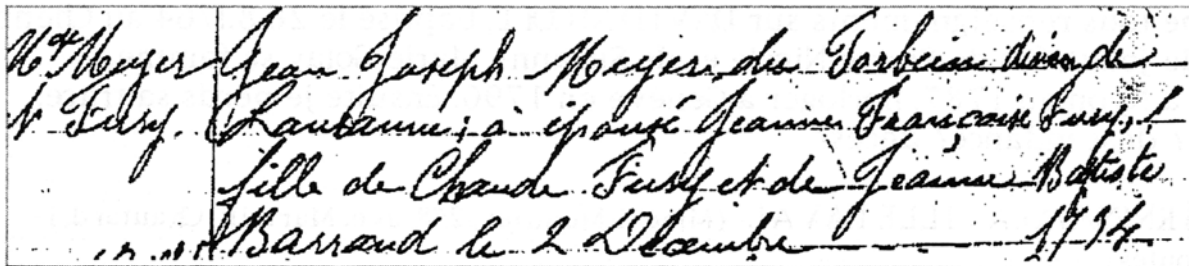 M.de Meyer Jean Joseph Meyer du Torbein divin de
N Fusy. Lausanne; à épousé Jeanne Françoise Fusy,
fille de Claude Fusy et de Jeanne Batiste
Barraud le 2 Décembre 1734